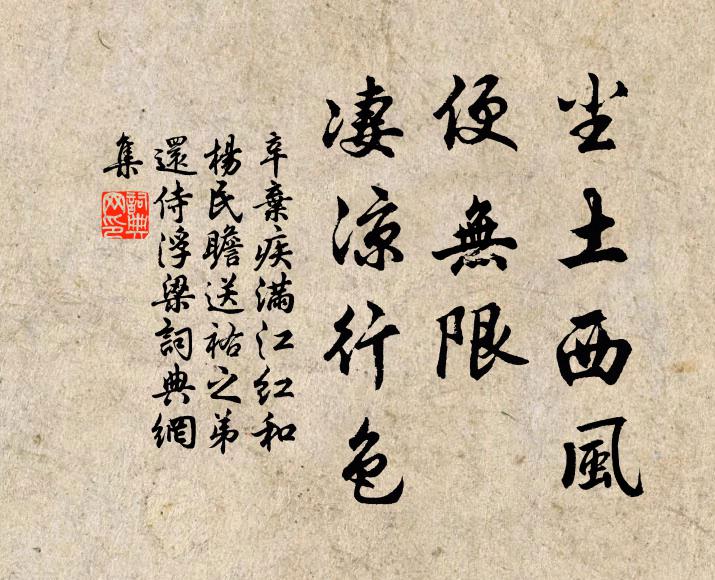 尘土西風
便無限
凄凉行色
辛棄疾满江红和
楊民瞻送祐之弟
還侍浮梁詞典網
集
詞典网印